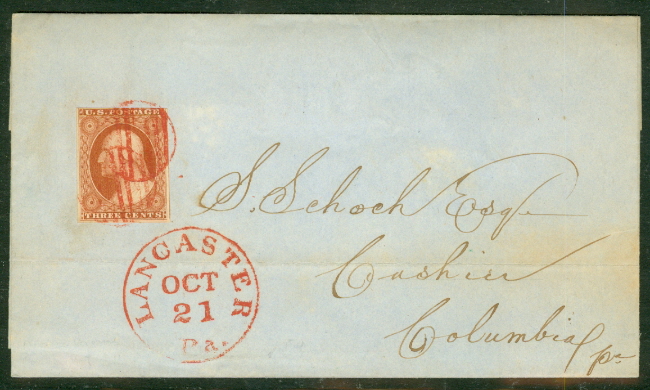 U.S. POSTAGE
THREE CENTS
LANCASTER
OCT
21
Pa.
S. Schoch Esqr
Cashier
Columbia
pa